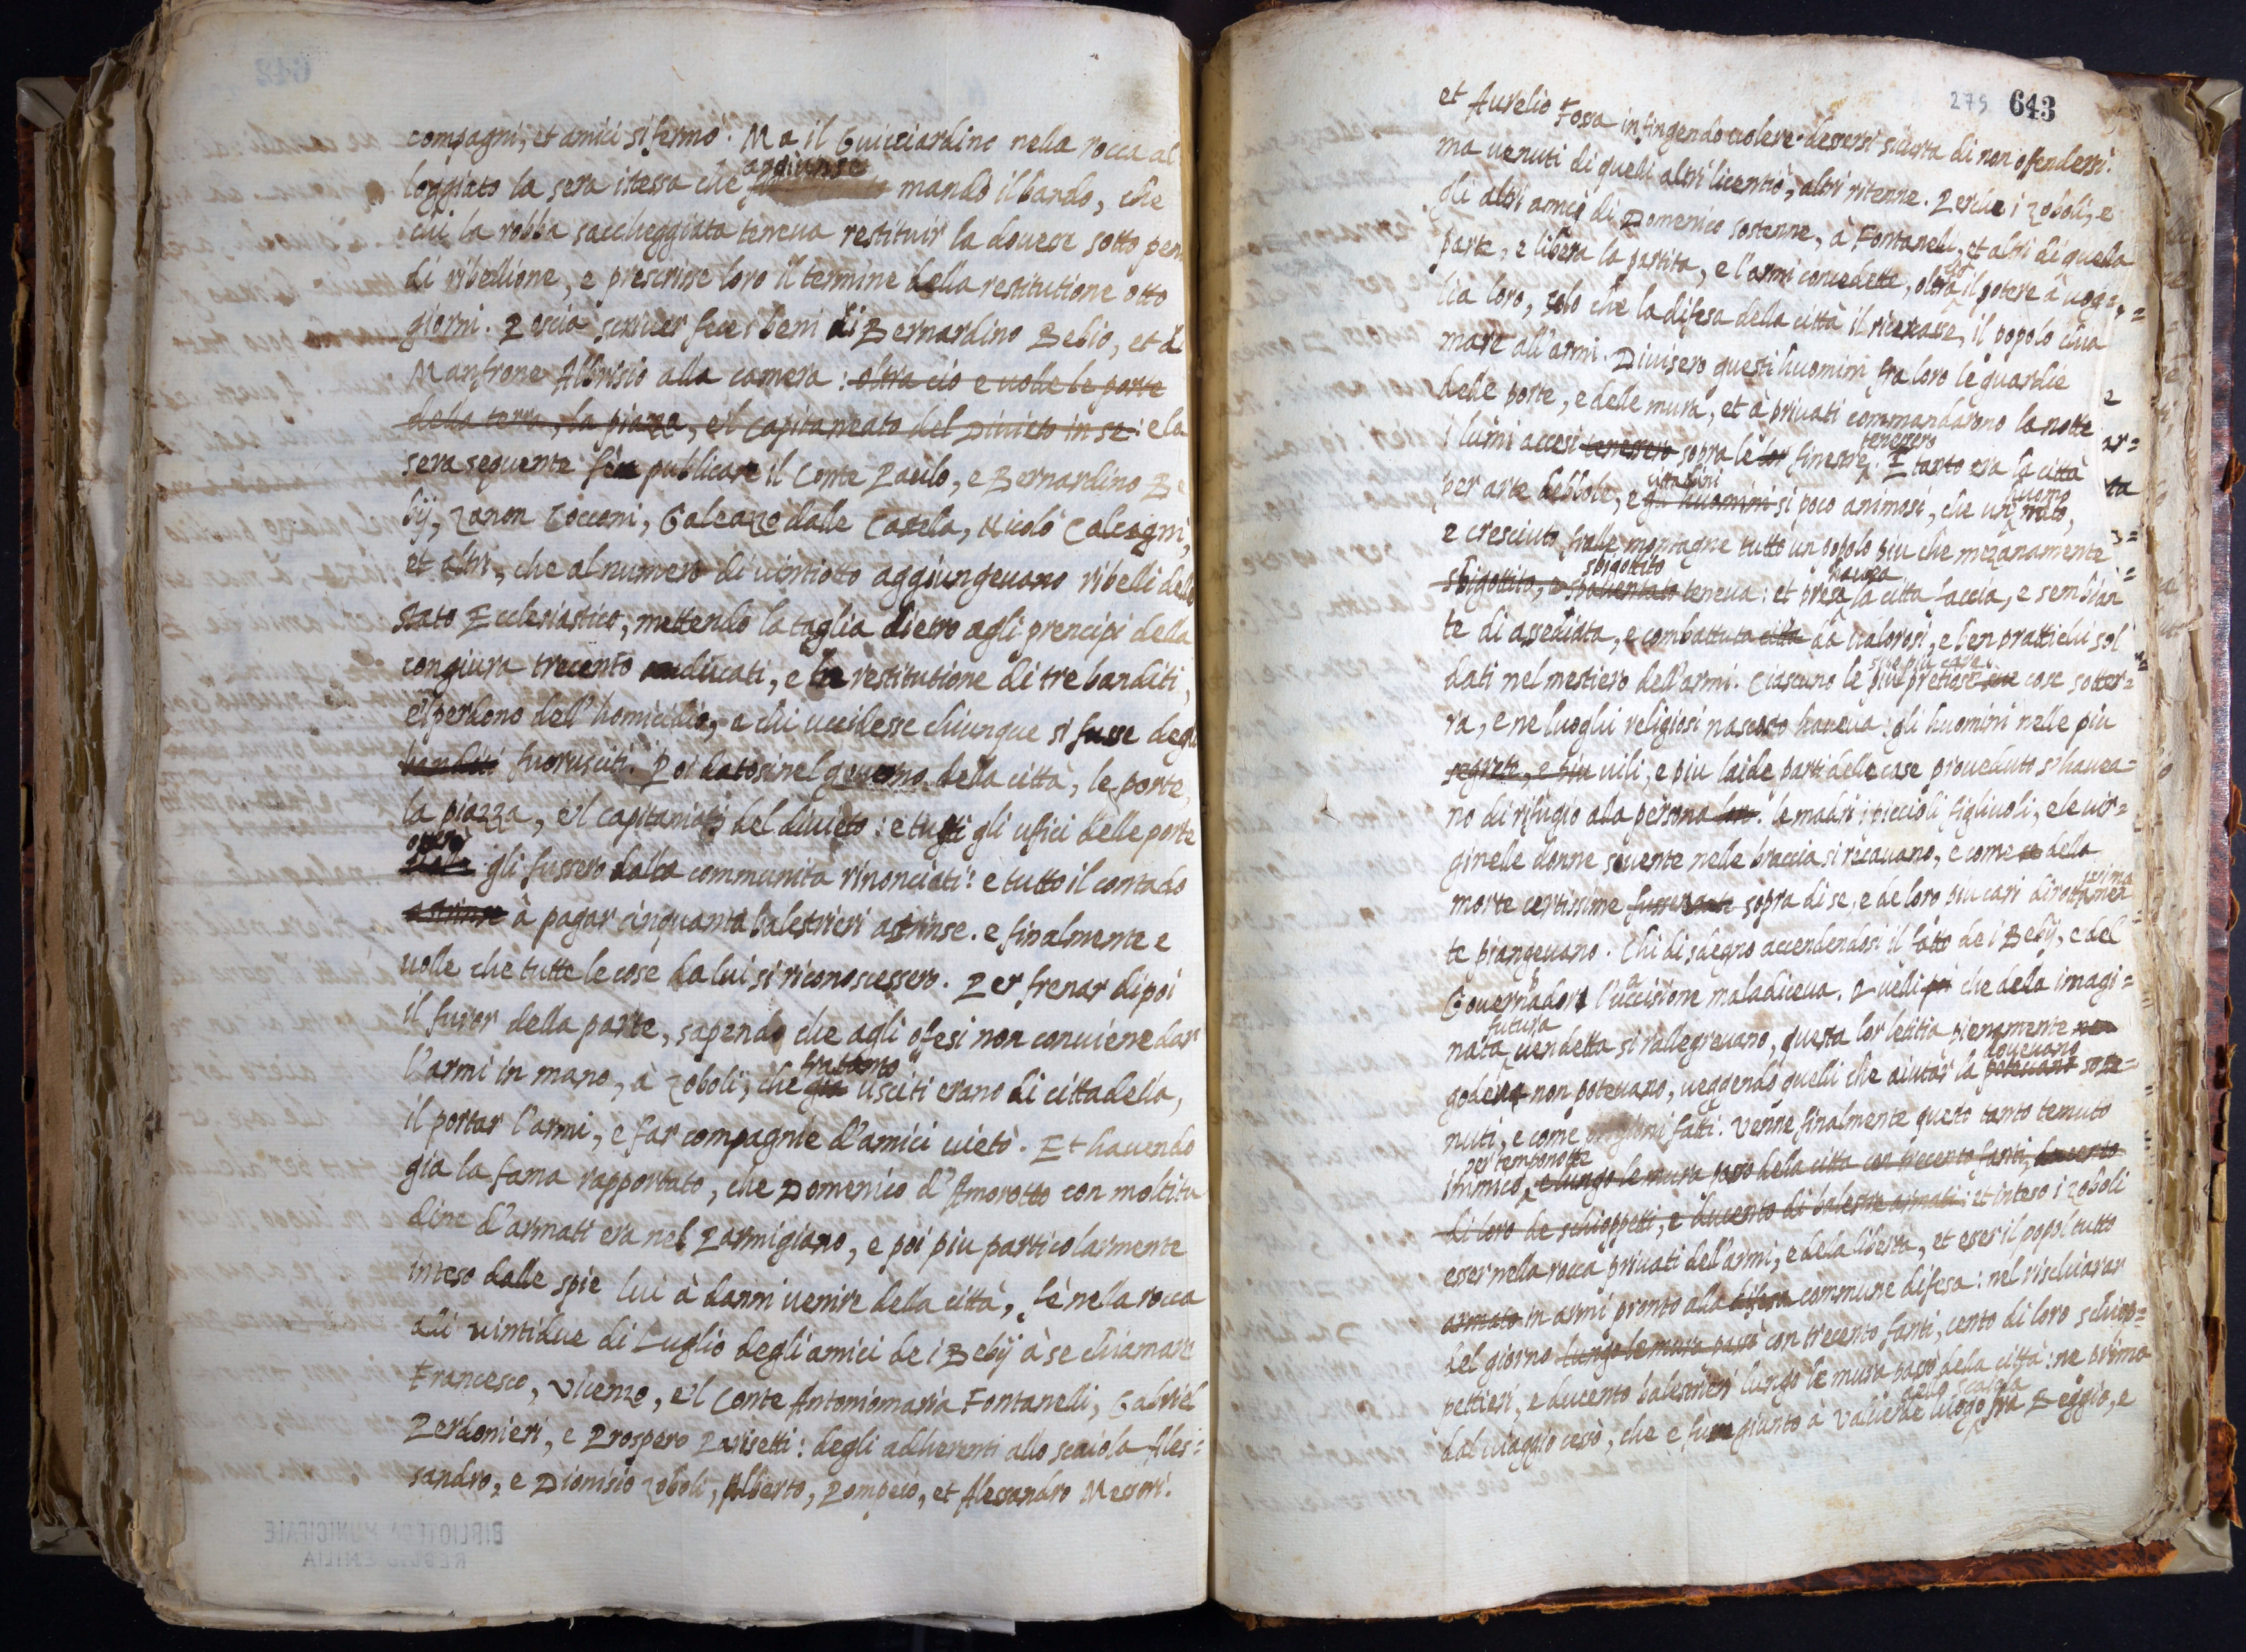 compagni, et amici si fermò. Ma il Guicciardino nella rocca al
loggiato la sera istessa che aggiunse mandò il bando, che
chi la robba saccheggiata teneva restituir la dovesse sotto pen
di ribellione, e prescrisse loro il termine della restitutione otto
giorni. Poscia scriver fece i beni di Bernardino Bebio, et di
Manfrone Albrisio alla camera: oltra ciò e volle le porte
della terra, la piazza, e'l Capitaneato del Divieto in se: e la
sera seguente fece publicare il Conte Paulo, e Bernardino Be
bij, Zanon Cocconi, Galeazo dalle Casela, Nicolò Calcagni,
et altri, che al numero di vintiotto aggiungevano ribelli dello
Stato Ecclesiastico, mettendo la taglia dietro agli prencipi della
congiura trecento ducati, e la restitutione di tre banditi,
e'l perdono dell'homicidio, a chi uccidesse chiunque si fusse degli
banditi fuorusciti. Poi datosi nel governo della città, le porte,
la piazza, e'l capitaniato del divieto: e tutti gli uffici delle porte
operò
gli fussero dalla communita rinonciati: e tutto il contado
astrinse à pagar cinquanta balestrieri astrinse. e finalmente e
volle che tutte le cose da lui si riconoscessero. Per frenar dipoi
il furor della parte, sapendo che agli ofesi non conviene dar
l'armi in mano, à Zoboli, che già frattanto usciti erano di cittadella,
il portar l'armi, e far compagnie d'amici vietò. Et havendo
gia la fama rapportato, che Domenico d'Amorotto con moltitu
dine d'armati era nel Parmigiano, e poi piu particolarmente
inteso dalle spie lui à danni venire della città, fè nella rocca
alli vintidue di Luglio degli amici de i Bebij à se chiamare
Francesco, Vicenzo, e'l Conte Antoniomaria Fontanelli, Gabriel
Perdonieri, e Prospero Parisetti: degli adherenti allo scaiola Ales=
sandro, e Dionisio Zoboli, Alberto, Pompeio, et Alessandro Messori.
BIBLIOTECA MUNICIPALE
REGGIO EMILIA
275 643
et Aurelio Fossa infingendo volere dessersi sicurtà di non offendersi.
ma venuti di quelli altri licentiò, altri ritenne. Perche i Zoboli, e
gli altri amici di Domenico sostenne, à Fontanelli, et altri di quella
parte, e libera la partita, e l'armi concedette, oltra il potere à vog=
lia loro, solo che la difesa della città il ricercasse, il popolo chia
mare all'armi. Divisero questi huomini fra loro le guardie
delle porte, e delle mura, et à privati commandarono la notte
i lumi accesi tenessero sopra le lor finestre tenessero. E tanto era la città
per arte debbole, e gli huomini cittadini si poco animosi, che un huomo nato,
e cresciuto fralle montagne tutto un popolo piu che mezanamente
sbigottito, e spaventato sbigottito teneva: et presa havea la citta faccia, e sembian
te di assediata, e combattuta citta da valorosi, e ben prattichi sol
dati nel mestiero dell'armi. Ciascuno le sue piu care piu pretiose sue cose sotter=
ra, e ne luoghi religiosi nascosto haveva: gli huomini nelle piu
segrete, e piu vili, e piu laide parti delle case proveduto s'havea=
no di rifugio alla persona lor: le madri i piccioli figlivoli, e le vir=
ginelle donne sovente nelle braccia si recavano, e come se della
morte certissime sopra di se, e de loro piu cari dirottissimamen
te piangevano. Chi di sdegno accendendosi il fatto de i Bebij, e del
Governadore l'uccisione maladiceva. Quelli poi che della imagi=
nata futura vendetta si rallegravano, questa lor letitia pienamente non
godere non potevano, veggendo quelli che aiutar la potevano dovevano soste=
nuti, e come prigioni fatti. Venne finalmente questo tanto temuto
inimico per tempo notte, e lungo le mura passò della citta con trecento fanti, ducento
di loro de schioppetti, e ducento di balestre armati: et inteso i Zoboli
esser nella rocca privati dell'armi, e dela libertà, et esser il popol tutto
armato in armi pronto alla difesa commune difesa: nel rischiarar
del giorno lungo le mura passò con trecento fanti, cento di loro schiop=
pettieri, e ducento balestrieri lungo le mura passò della città: ne prima
dal viaggio cessò, che e fu giunto à Valverde luogo dello scaiola fra Reggio, e